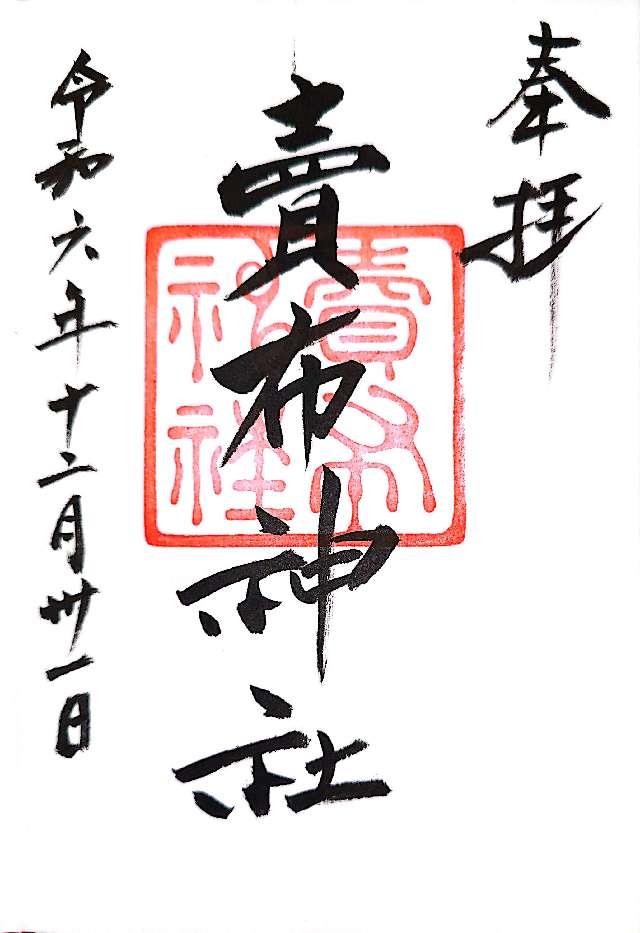 奉拝
賣布神社
賣布
神社
令和六年十二月卅一日